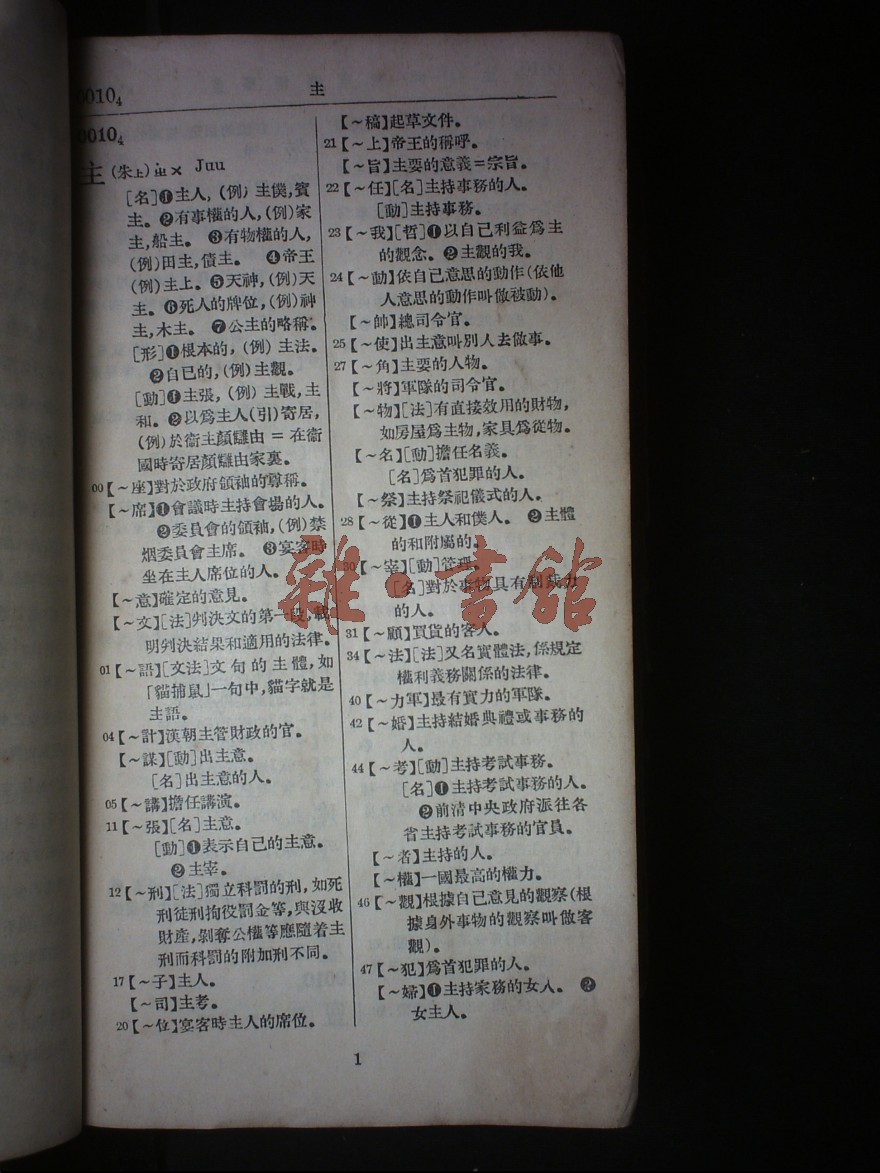 0010₄
主
0010₄
主 (朱上) ㄓㄨ Juu
[名]❶主人，(例)主僕，賓
主。❷有事權的人，(例)家
主，船主。❸有物權的人，
(例)田主，債主。❹帝王
(例)主上。❺天神，(例)天
主。❻死人的牌位，(例)神
主，木主。❼公主的略稱。
[形]❶根本的，(例)主法。
❷自己的，(例)主觀。
[動]❶主張，(例)主戰，主
和。❷以爲主人(引)寄居，
(例)於衞主顏讎由＝在衞
國時寄居顏讎由家裏。
00【～座】對於政府領袖的尊稱。
【～席】❶會議時主持會場的人。
❷委員會的領袖，(例)禁
烟委員會主席。❸宴客時
坐在主人席位的人。
【～意】確定的意見。
【～文】[法]判決文的第一段，載
明判決結果和適用的法律。
01【～語】[文法]文句的主體，如
「貓捕鼠」一句中，貓字就是
主語。
04【～計】漢朝主管財政的官。
【～謀】[動]出主意。
[名]出主意的人。
05【～講】擔任講演。
11【～張】[名]主意。
[動]❶表示自己的主意。
❷主宰。
12【～刑】[法]獨立科罰的刑，如死
刑徒刑拘役罰金等，與沒收
財產，剝奪公權等應隨着主
刑而科罰的附加刑不同。
17【～子】主人。
【～司】主考。
20【～位】宴客時主人的席位。
【～稿】起草文件。
21【～上】帝王的稱呼。
【～旨】主要的意義＝宗旨。
22【～任】[名]主持事務的人。
[動]主持事務。
23【～我】[哲]❶以自己利益爲主
的觀念。❷主觀的我。
24【～動】依自己意思的動作(依他
人意思的動作叫做被動)。
【～帥】總司令官。
25【～使】出主意叫別人去做事。
27【～角】主要的人物。
【～將】軍隊的司令官。
【～物】[法]有直接效用的財物，
如房屋爲主物，家具爲從物。
【～名】[動]擔任名義。
[名]爲首犯罪的人。
【～祭】主持祭祀儀式的人。
28【～從】❶主人和僕人。❷主體
的和附屬的。
30【～宰】[動]管理。
[名]對於事物具有制裁力
的人。
31【～顧】買貨的客人。
34【～法】[法]又名實體法，係規定
權利義務關係的法律。
40【～力軍】最有實力的軍隊。
42【～婚】主持結婚典禮或事務的
人。
44【～考】[動]主持考試事務。
[名]❶主持考試事務的人。
❷前清中央政府派往各
省主持考試事務的官員。
【～者】主持的人。
【～權】一國最高的權力。
46【～觀】根據自己意見的觀察(根
據身外事物的觀察叫做客
觀)。
47【～犯】爲首犯罪的人。
【～婦】❶主持家務的女人。❷
女主人。
1
雜·書館